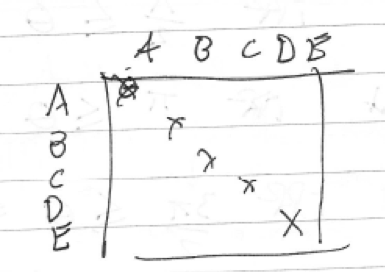 A B C D E
A
B X
C X
D X
E X